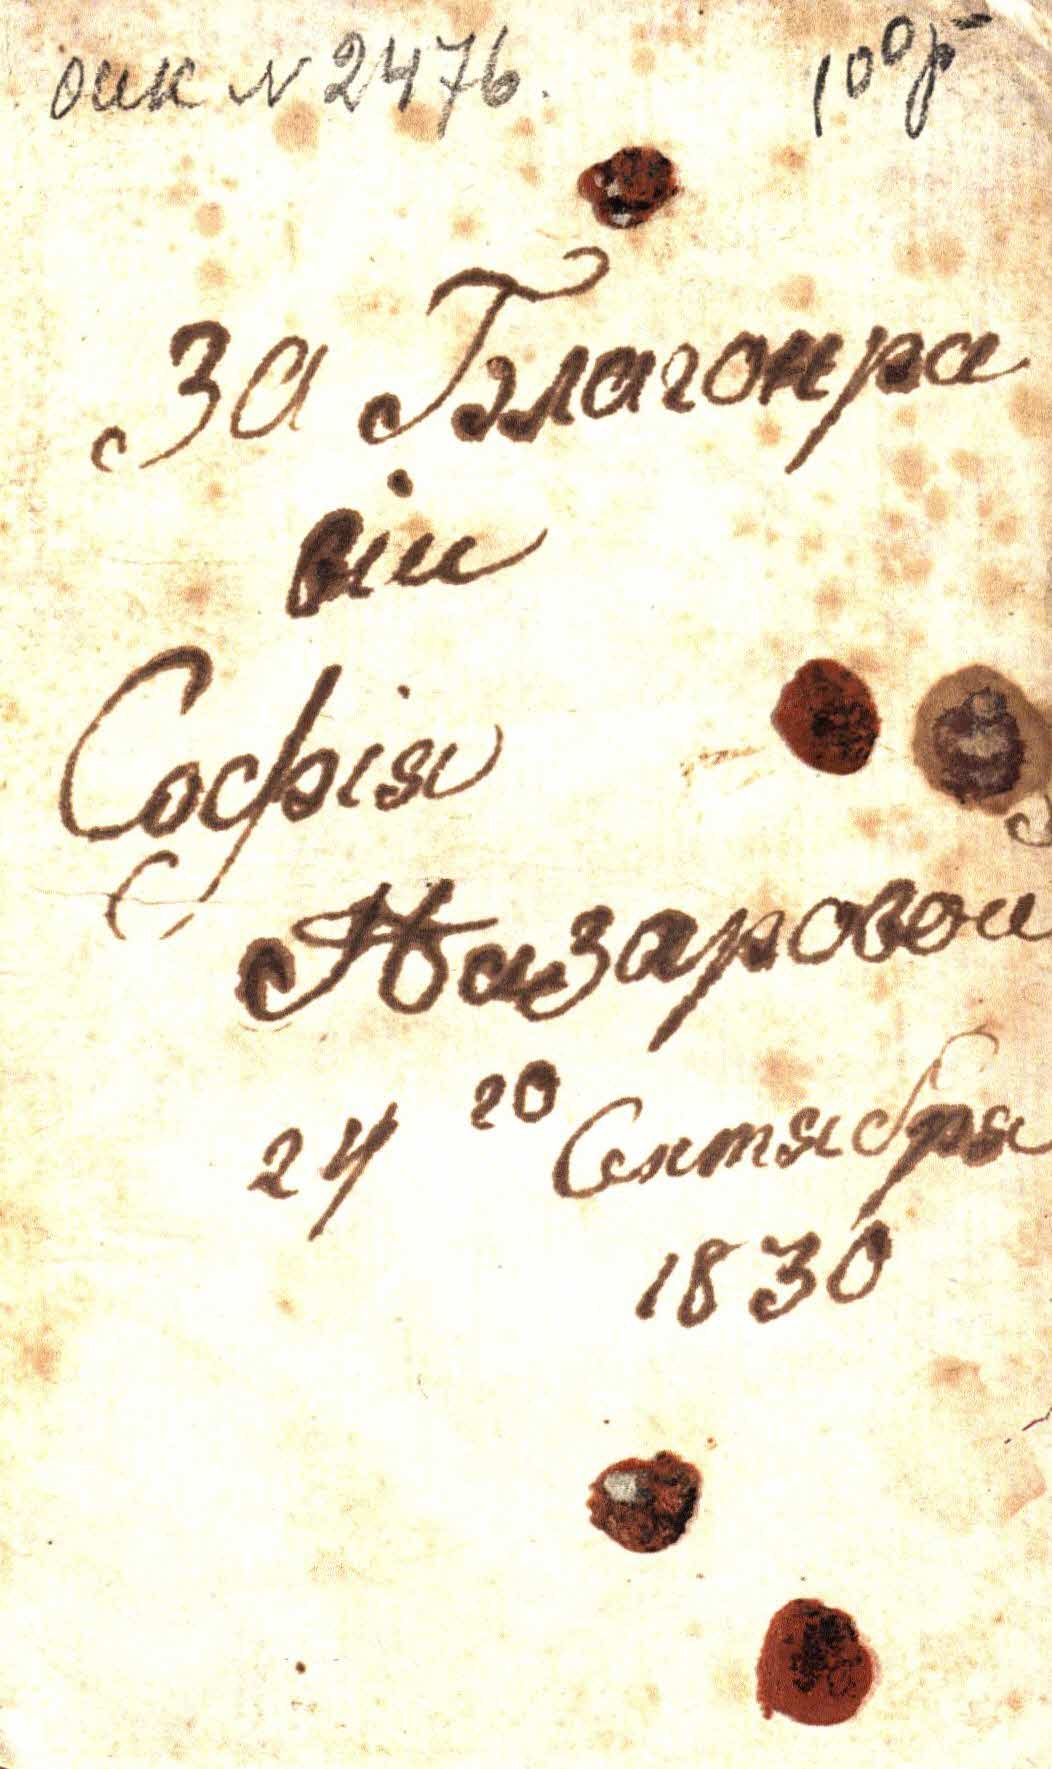 оик N 2476. 100р
За Благонра
віи
Софіи
Назаровои
24 го Сентября
1830